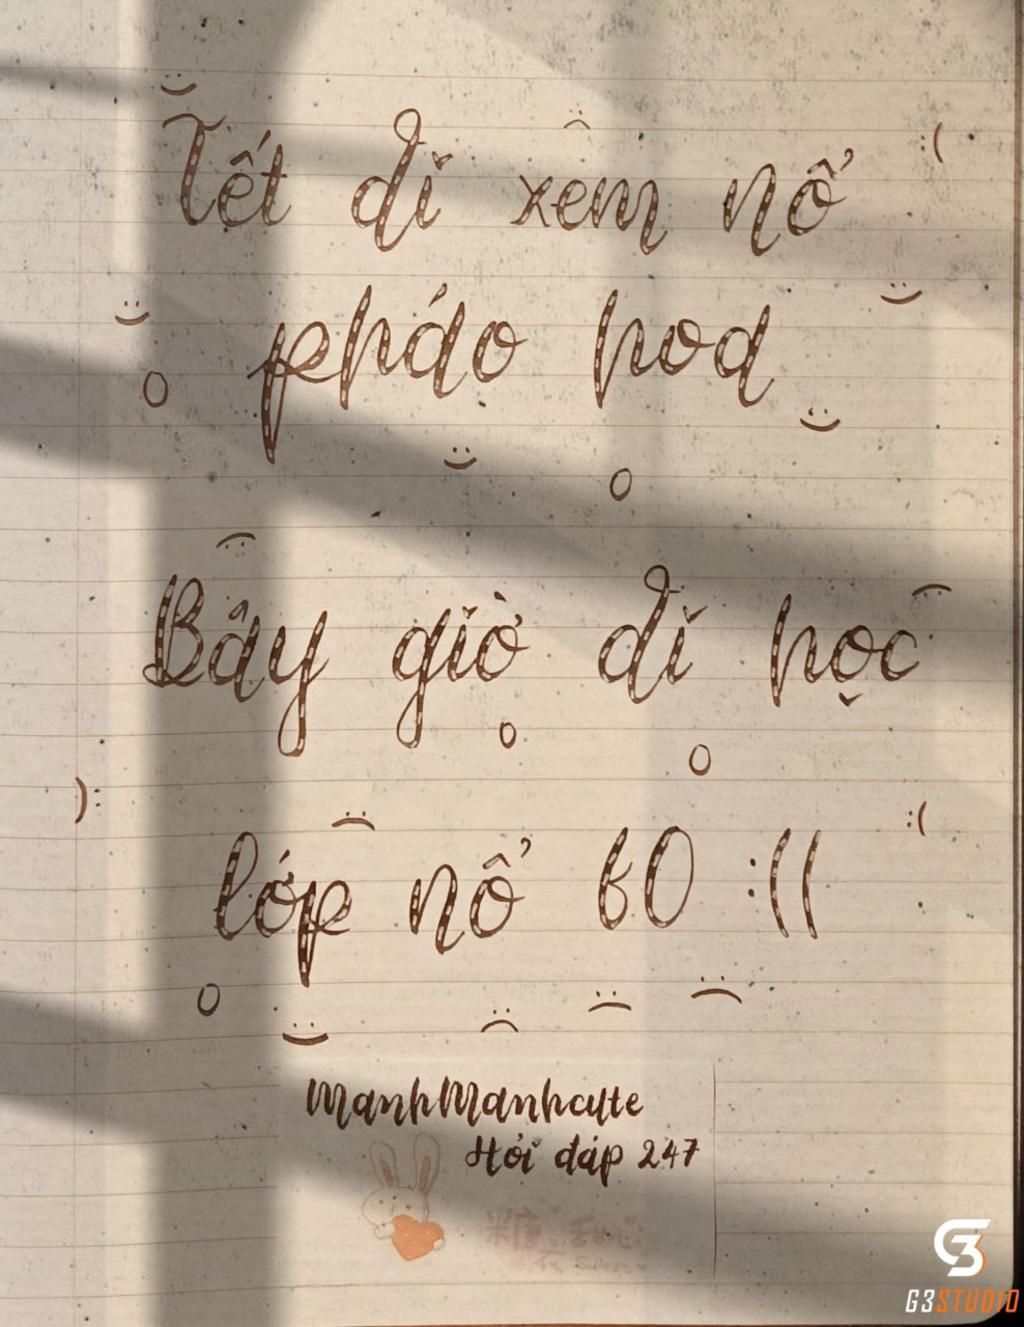 Tết đi xem nổ
pháo hoa
Bây giờ đi học
lớp nổ 60 :((
ManhManhcute
Hỏi đáp 247
G3STUDIO